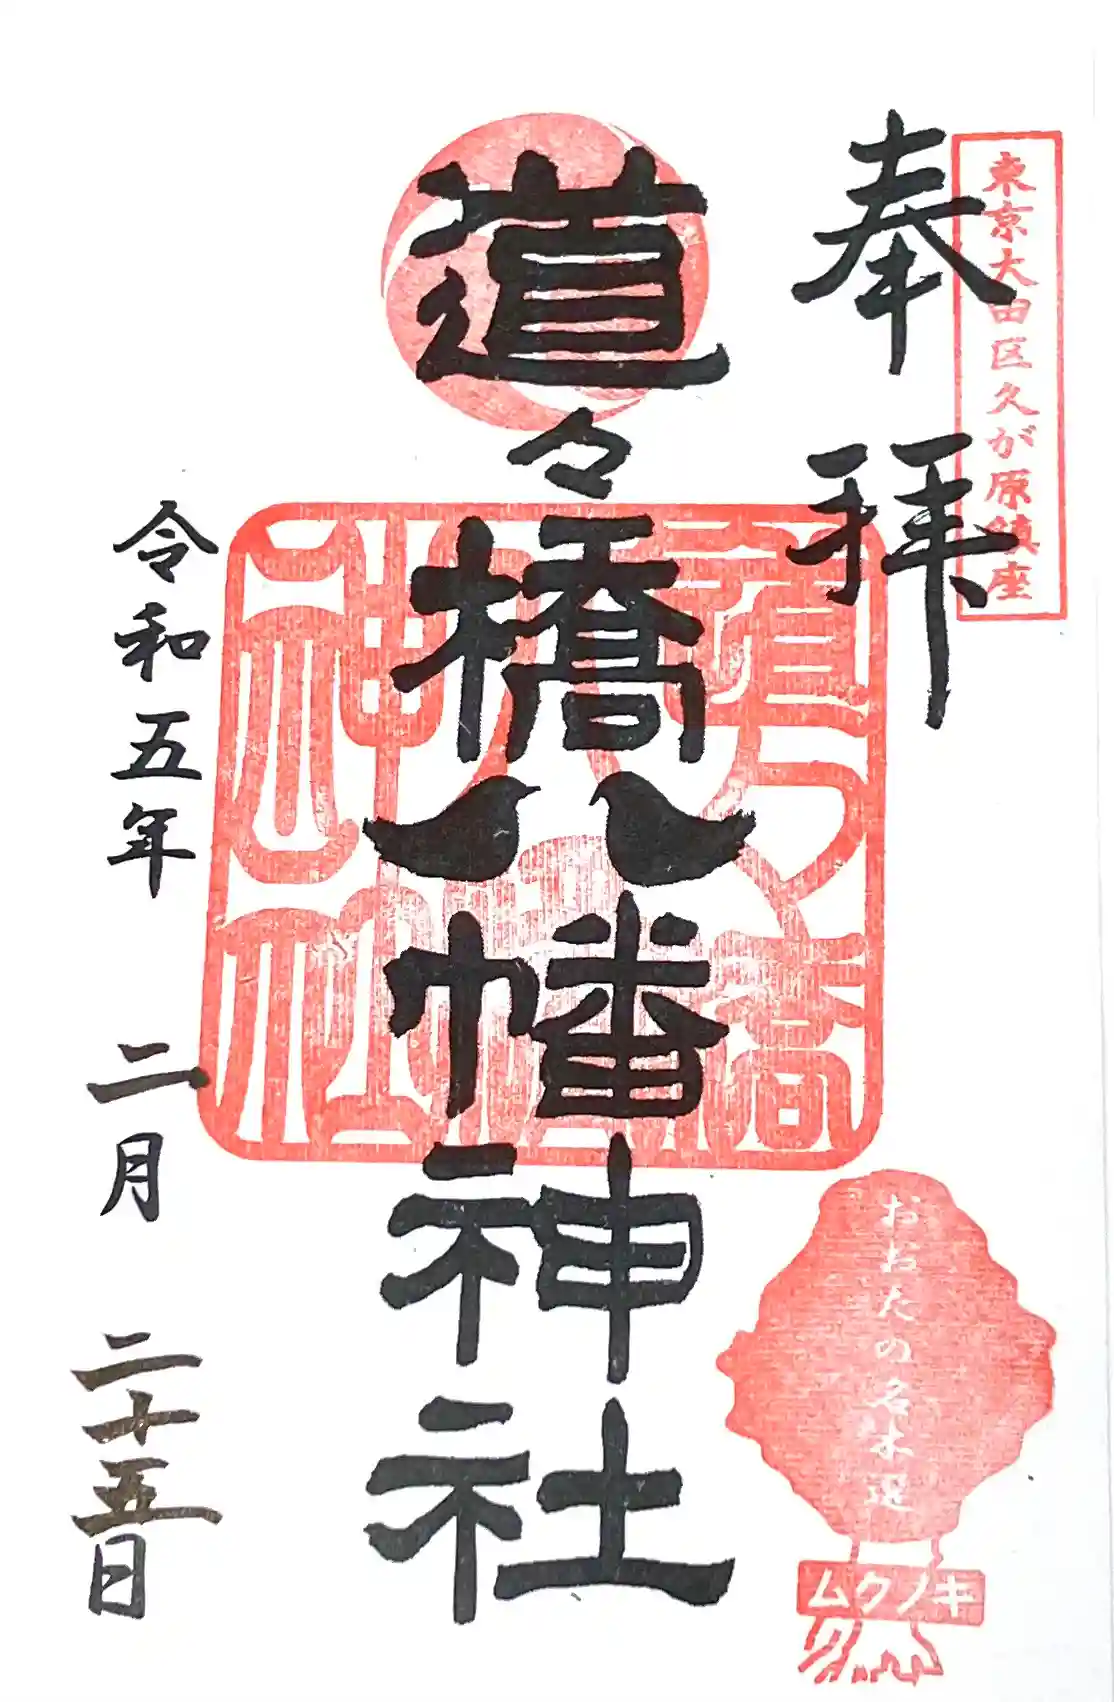 東京大田区久が原鎮座
奉拝
道々橋八幡神社
令和五年 二月 二十五日
おおたの名木選
ムクノキ